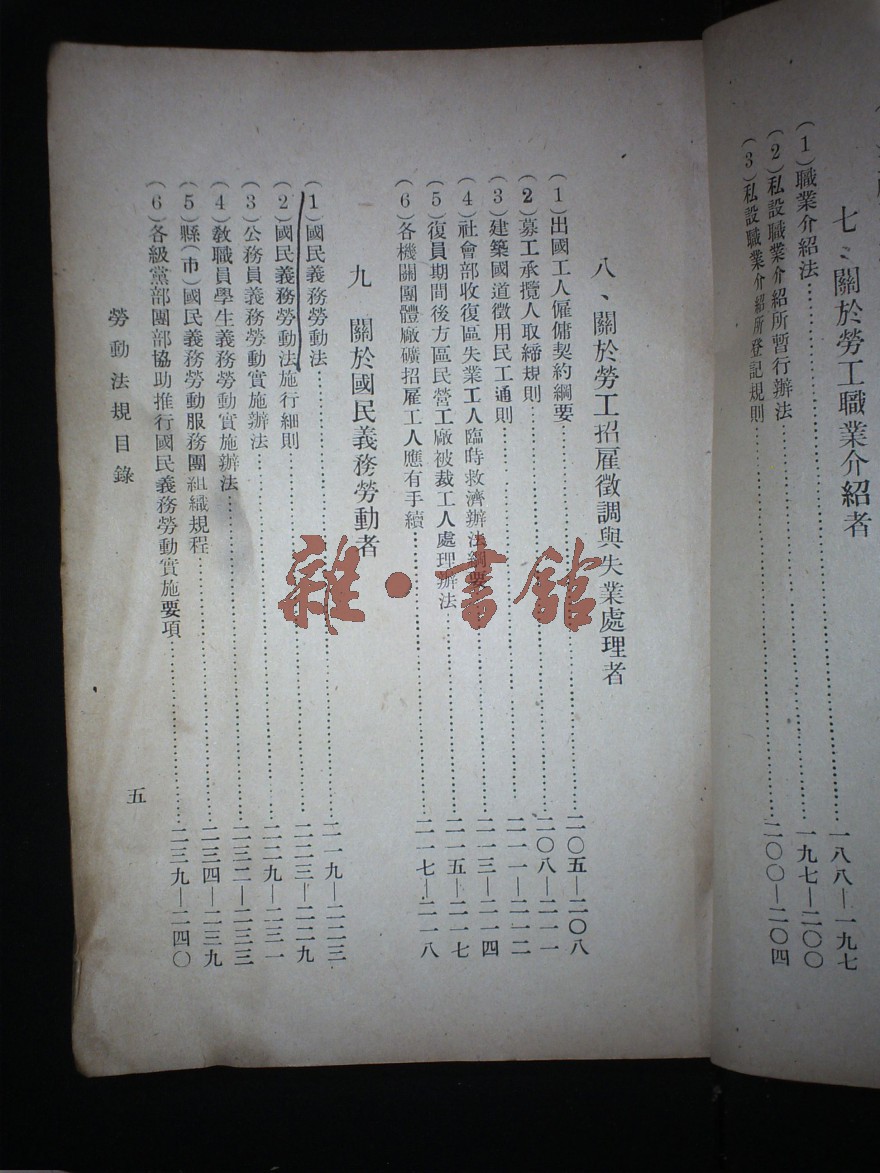 七、關於勞工職業介紹者
(1)職業介紹法…………一八八—一九七
(2)私設職業介紹所暫行辦法…………一九七—二〇〇
(3)私設職業介紹所登記規則…………二〇〇—二〇四
八、關於勞工招雇徵調與失業處理者
(1)出國工人僱傭契約綱要…………二〇五—二〇八
(2)募工承攬人取締規則…………二〇八—二一一
(3)建築國道徵用民工通則…………二一一—二一二
(4)社會部收復區失業工人臨時救濟辦法綱要…………二一三—二一四
(5)復員期間後方區民營工廠被裁工人處理辦法…………二一五—二一七
(6)各機關團體廠礦招雇工人應有手續…………二一七—二一八
九 關於國民義務勞動者
(1)國民義務勞動法…………二一九—二二三
(2)國民義務勞動法施行細則…………二二三—二二九
(3)公務員義務勞動實施辦法…………二二九—二三一
(4)教職員學生義務勞動實施辦法…………二三二—二三三
(5)縣(市)國民義務勞動服務團組織規程…………二三四—二三九
(6)各級黨部團部協助推行國民義務勞動實施要項…………二三九—二四〇
勞動法規目錄
五
雜·書館